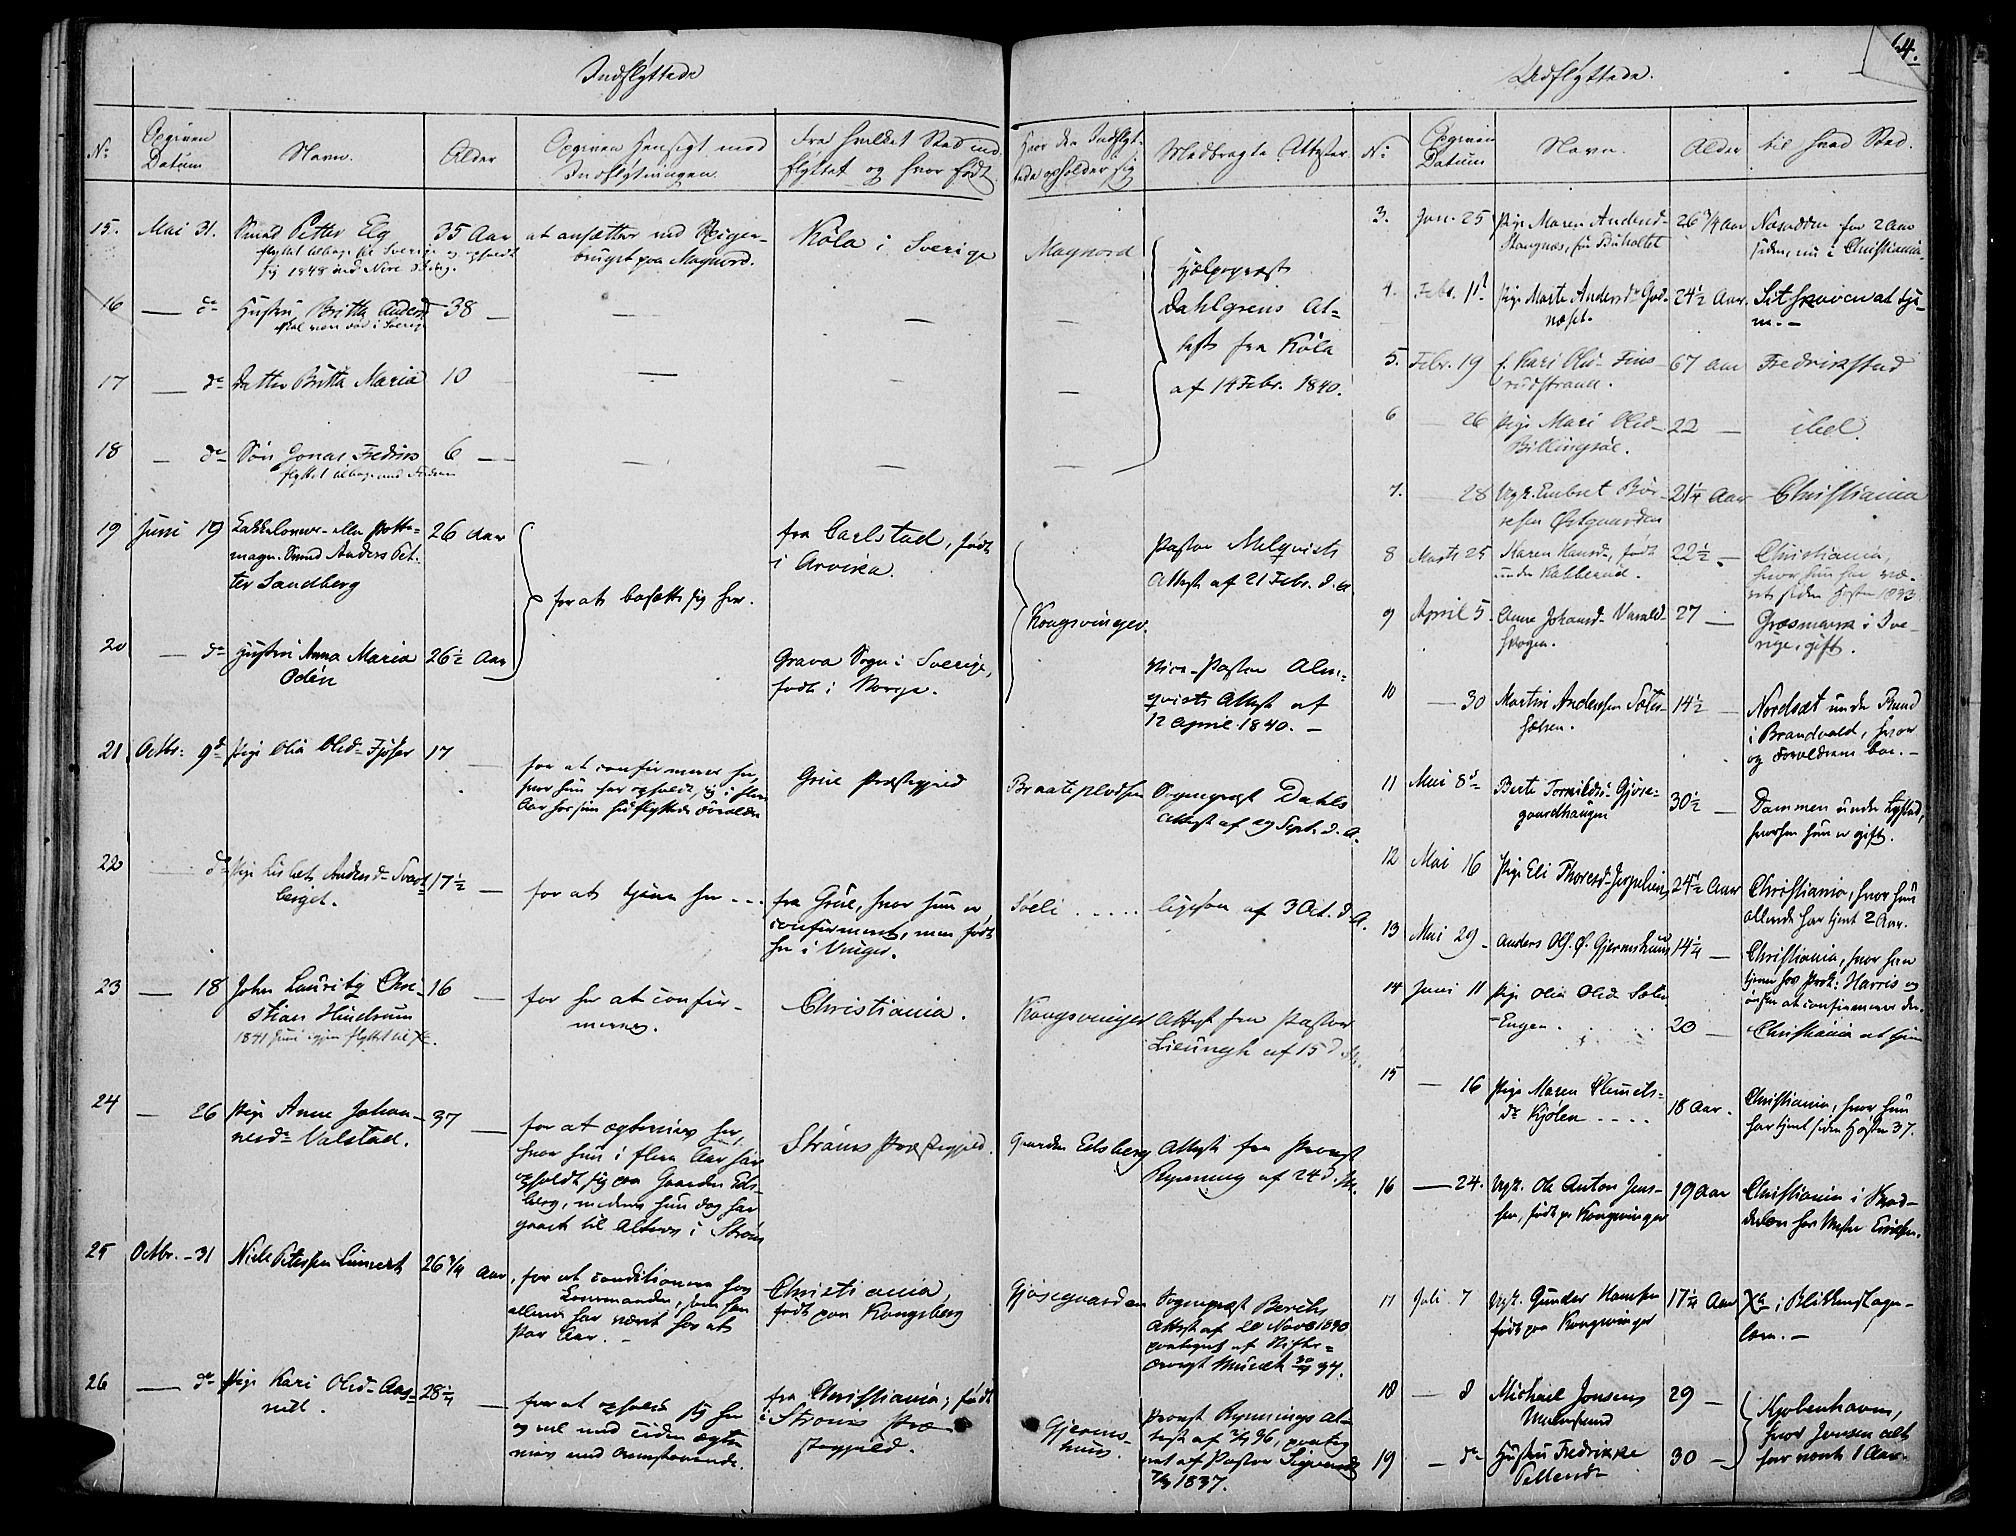 64.
Indflyttede
Udflyttede.
No
Opgiven
Datum
Navn.
Alder
Opgiven Hensigt med
Indflytningen.
Fra hvilket Sted ind
flyttet og hvor født
Hvor den Indflyt-
tede opholder sig
Medbragte Attester
15. Mai 31. Smed Petter Elg 35 Aar
flyttet tilbage til Sverige og opholdt
sig 1848 ved Nore
at ansættes ved Spiger-
bruget paa Magnord.
Köla i Sverige
Magnord
Hjælpepræst
Dahlgrens At-
test fra Köla
af 14 Febr. 1840.
16 — do Hustru Britta Andersd 38 —
skal være død i Sverige
17 — do Datter Britta Maria 10
18 — do Søn Jonas Fredrik 6 —
flyttet tilbage med Faderen
19 Juni 19 Kakkelovns- eller Potte-
mager Svend Anders Pet-
ter Sandberg
26 Aar
for at bosætte sig her.
fra Carlstad, født
i Arvika.
Kongsvinger.
Pastor Melqvists
Attest af 21 Febr. d. A.
20 — do Hustru Anna Maria
Odén
26½ Aar
Grava Sogn i Sverige,
født i Norge.
Vice-Pastor Alm-
qvists Attest af
12 April 1840. —
21 Octbr: 9de Pige Olia Olsd- Fjøser 17
for at confirmeres her,
hvor hun har opholdt sig i flere
Aar hos sine hidflyttede Forældre
Grue Præstegjeld
Braatepladsen
Sognepræst Dahls
Attest af 29 Sept. d. A.
22 — do Pige Lisbet Andersd- Svart-
berget.
17½ —
for at tjene her . . .
fra Grue, hvor hun er
confirmeret, men født
her i Vinger.
Søeli . . . . .
ligesaa af 3 Oct. d. A.
23 — 18 John Lauritz Chri-
stian Hindrum
1841 Juni igjen flyttet til Xa.
16 —
for her at confir-
meres.
Christiania.
Kongsvinger
Attest fra Pastor
Lieungh af 15 d. M.
24 — 26 Pige Anne Johan-
nesd- Valstad.
37 —
for at ægtevies her,
hvor hun i flere Aar har
opholdt sig paa Gaarden Eds-
berg, medens hun dog har
gaaet til Alters i Strøm
Strøms Præstegjeld.
Gaarden Edsberg
Attest fra Provst
Rynning af 24 d. M.
25 Octbr. - 31 Niels Petersen Lunert 26 3/4 Aar
for at conditionere hos
Commandanten, som han
allerede har været hos et
Par Aar. —
Christiania,
født paa Kongsberg
Gjøsegaarden
Sognepræst Berichs
Attest af 20 Novb 1830
paategnet af Stifts-
provst Munch
26 — do Pige Kari Olsd- Aas-
28¼ —
for at opholde sig her
og vel med Tiden ægte-
vies med Ovenstaaende.
fra Christiania; født
i Strøms Præ-
stegjeld.
Gjerms-
huus.
Provst Rynnings At-
test af 36, paateg-
net af Pastor
1837.
No
Opgiven
Datum
Navn.
Alder
til hvad Sted.
3. Jan. 25 Pige Maren Andersd-
Stangnes, fra Buholtet
26 3/4 Aar Næsodden for 2 Aar
siden, nu i Christiania
4. Febr. 11t Pige Marte Andersdr God-
næset.
24½ Aar. Sitskoven at tje-
ne. —
5. Febr. 19 f. Kari Olsd- Fins-
rudstrand.
67 Aar Fredrikstad
6 — 26 Pige Mari Olsd-
Billingsøe.
22 — ibid.
7. — 28 Ugk. Embret Bør-
resen Østgaarden
21¼ Aar Christiania
8 Marts 25 Maren Hansd-, født
under Kabberud.
22½ — Christiania,
hvor hun har væ-
ret siden Høsten 1833
9 April 5. Anne Johansd- Varald-
skogen.
27 — Græsmark i Sve-
rige, gift.
10 — 30 Martin Anderssen Sæter-
14½ — Nordsæt under Rund
i Brandvold, hvor
og Forældrene boe. —
11 Mai 8de Berte Tormildsd- Gjøse-
gaardhaugen
30½ — Dammen under Lystad,
hvorhen hun er gift.
12 Mai 16 Pige Eli Thoresd- Jerpelien
24½ Aar Christiania, hvor hun
allerede har tjent 2 Aar.
13 Mai 29 - Anders Ols. Ø. Gjermshuus 14¼ — Christiania, hvor han
tjener hos Prok: Harris og
ønsker at confirmeres der.
14 Juni 11 Pige Olia Olsd Sæter-
Engen.
20 — Christiania at tjene
15 — 16 Pige Maren Clemets-
dr Kjølen . . . .
18 Aar. Christiania, hvor hun
har tjent siden Høsten 37.
16 — 24. Ugk. Ole Anton Jens-
sen, født paa Kongsvinger
19 Aar Christiania i Skrad-
derlære hos Mester
17 Juli 7 Ugk. Gunder Hansen
født paa Kongsvinger
17¼ Aar Xa i Blikkenslager-
lære. —
18 — 8 Michael Jensen
29 —
19 — do Hustru Fredrikke
30 —
Kjøbenhavn,
hvor Jensen alt
har været 1 Aar.